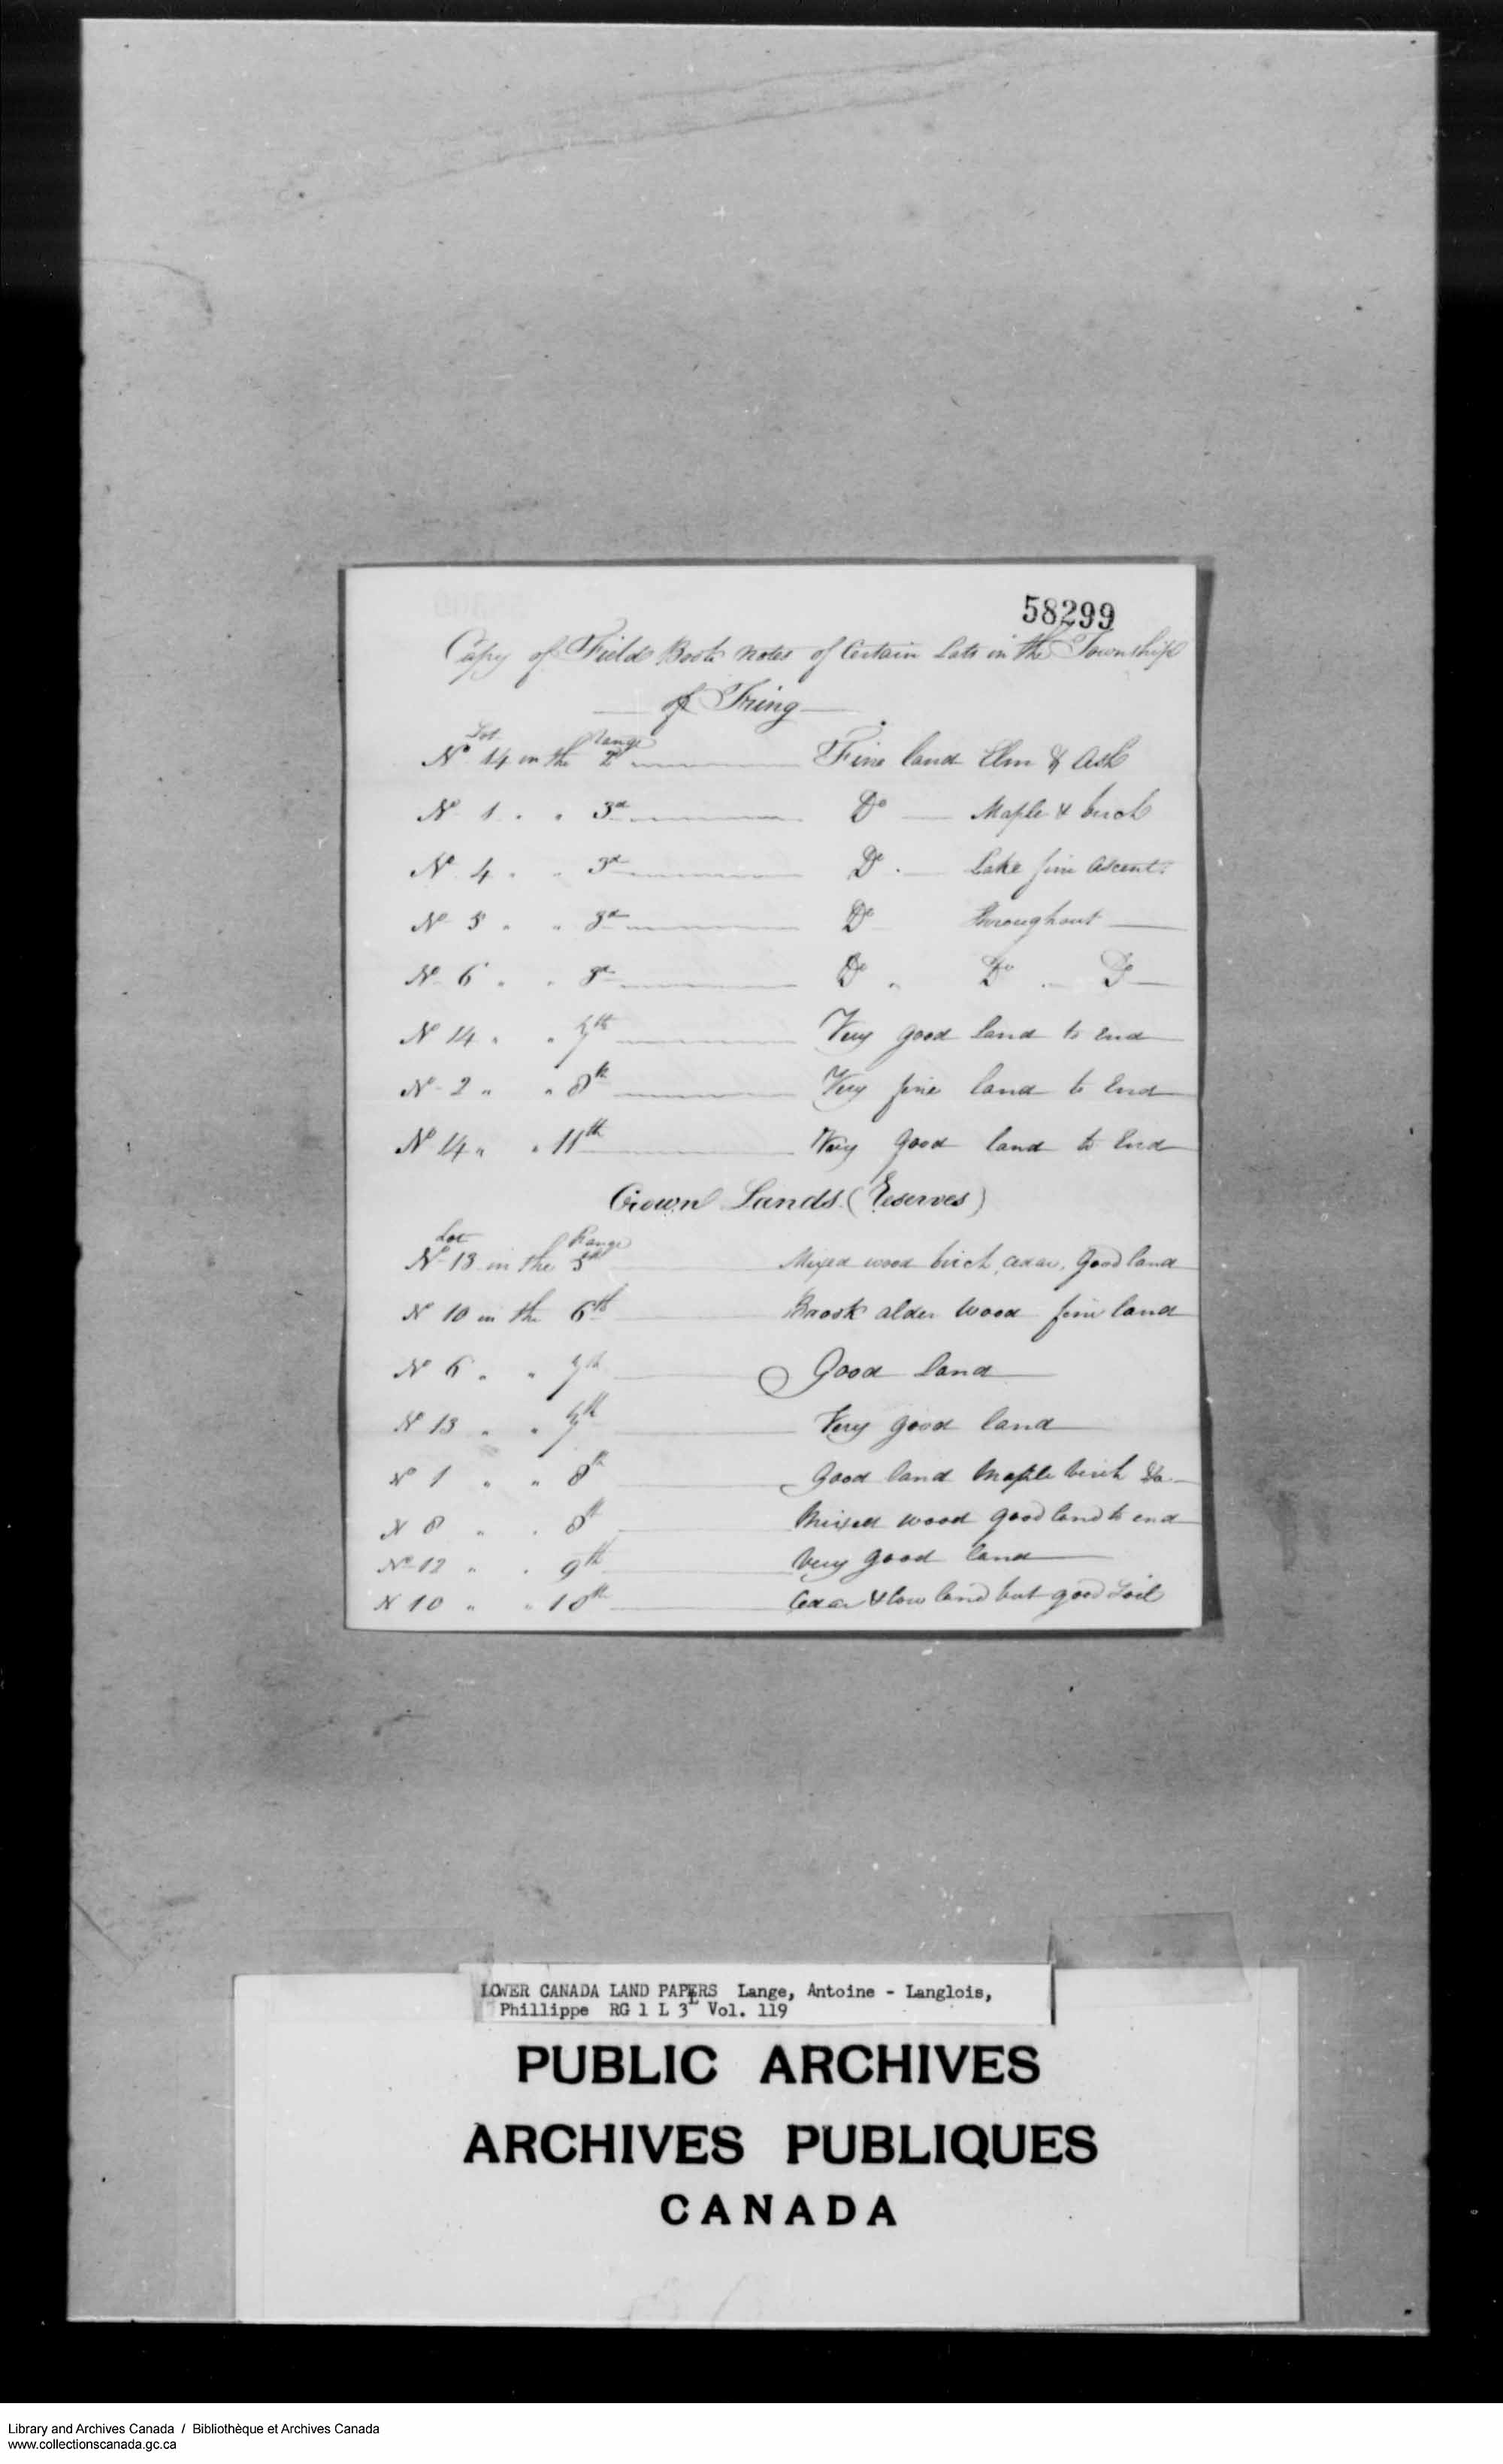 58299
Copy of Field Book notes of Certain Lots in the Township
of Tring
Lot Range
No 14 in the 2d Fine land Elm & Ash
No 1 " " 3d Do Maple & birch
No 4 " " 3d Do Lake fine ascent
No 5 " " 3d Do throughout
No 6 " " 3d Do " Do " Do
No 14 " " 7th Very good land to end
No 2 " " 8th Very fine land to End
No 14 " " 11th Very good land to End
Crown Lands (Reserves)
Lot Range
No 13 in the 5th Mixed wood birch, cedar, good land
No 10 in the 6th Brook alder wood fine land
No 6 " " 7th Good land
No 13 " " 7th Very good land
No 1 " " 8th Good land Maple birch &a
No 8 " " 8th Mixed wood good land to end
No 12 " " 9th Very good land
No 10 " " 10th Cedar & low land but good Soil
LOWER CANADA LAND PAPERS Lange, Antoine - Langlois,
Phillippe RG 1 L 3L Vol. 119
PUBLIC ARCHIVES
ARCHIVES PUBLIQUES
CANADA
Library and Archives Canada / Bibliothèque et Archives Canada
www.collectionscanada.gc.ca